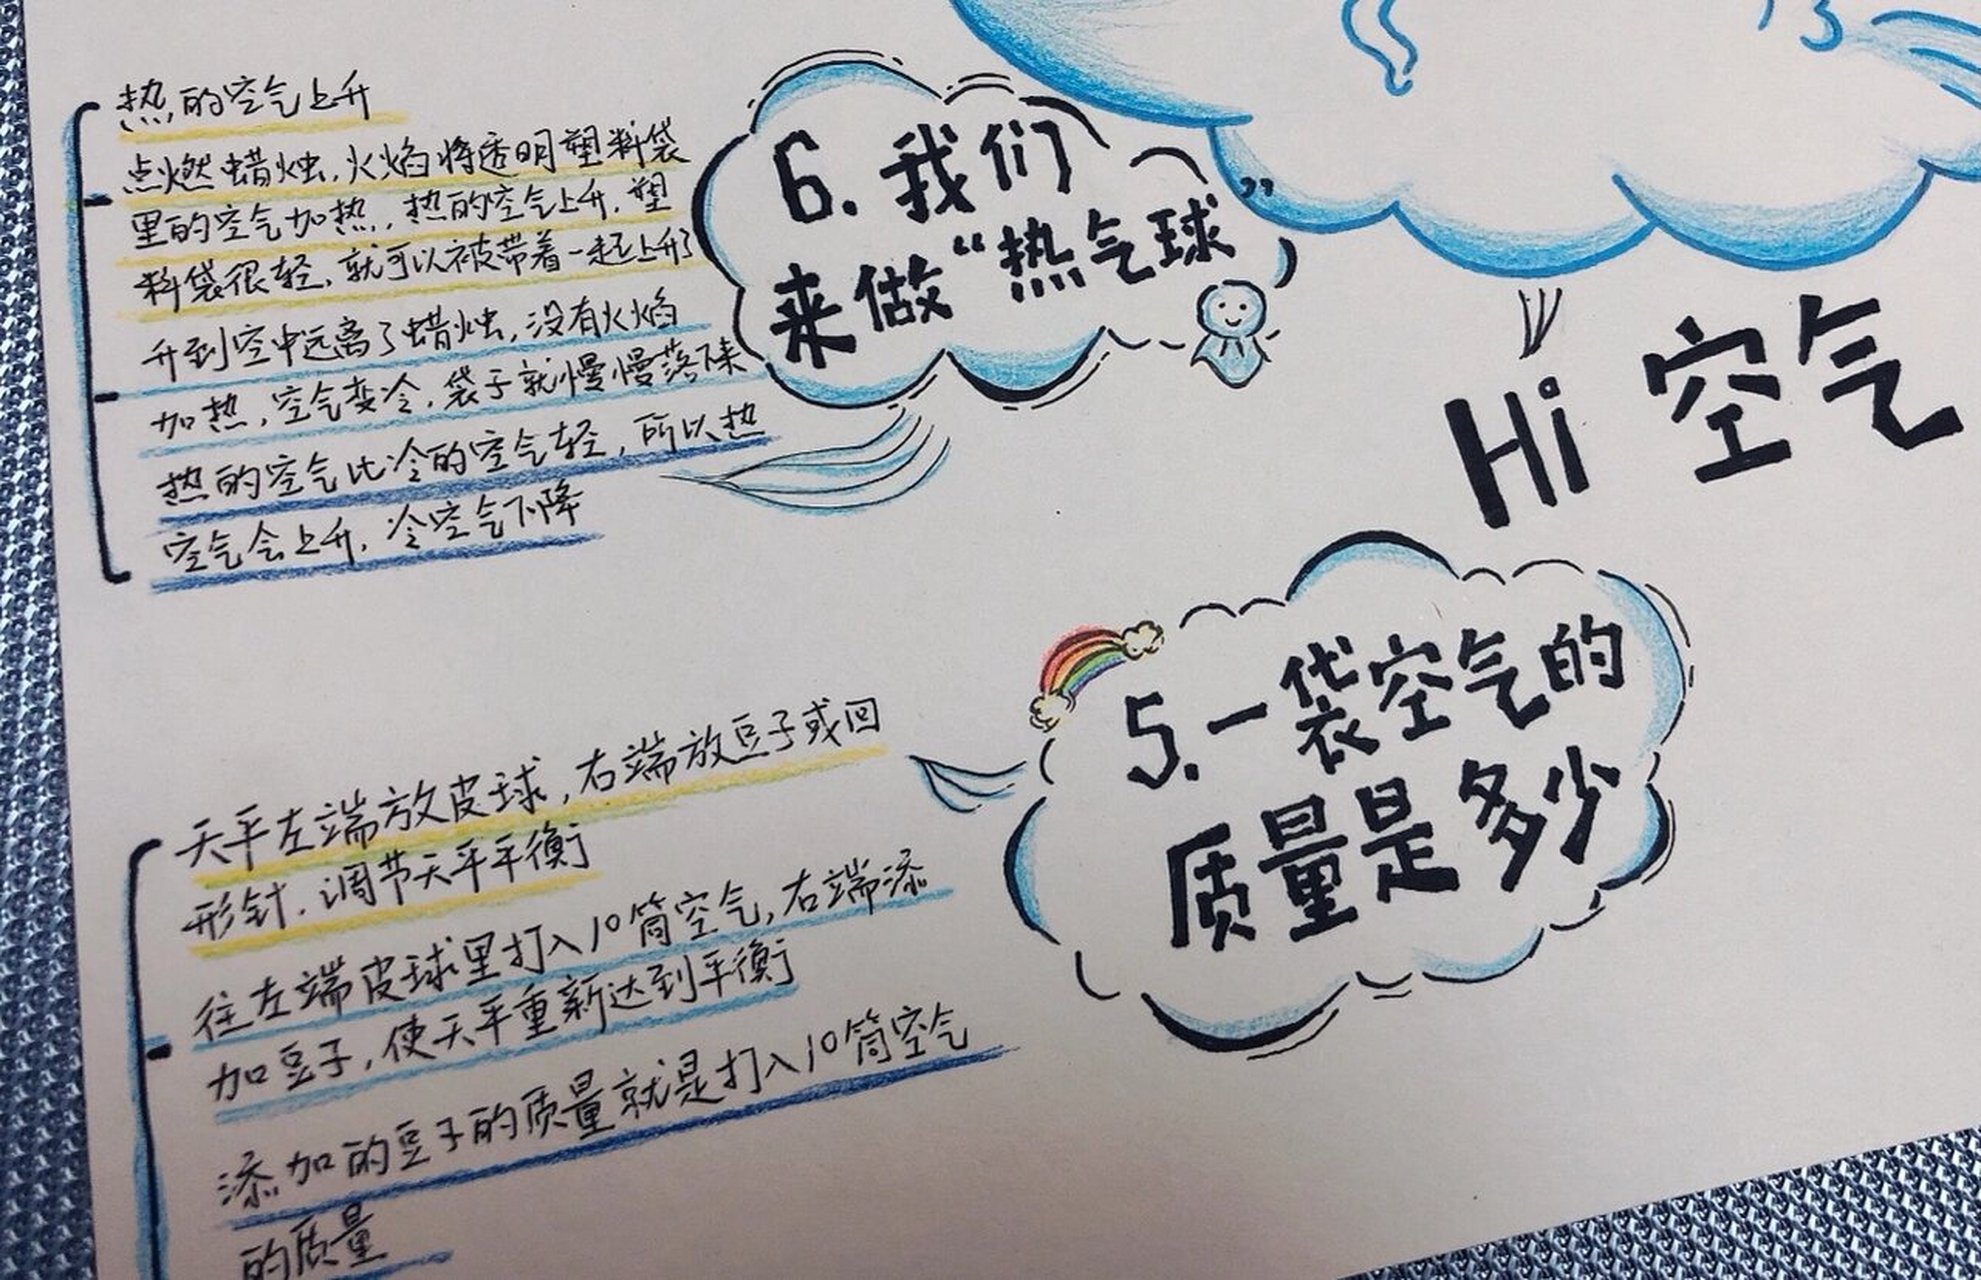 热的空气上升
点燃蜡烛,火焰将透明塑料袋
里的空气加热,热的空气上升,塑
料袋很轻,就可以被带着一起上升了
升到空中远离了蜡烛,没有火焰
加热,空气变冷,袋子就慢慢落下来
热的空气比冷的空气轻,所以热
空气会上升,冷空气下降
6.我们
来做“热气球”
Hi 空气
5.一袋空气的
质量是多少
天平左端放皮球,右端放豆子或回
形针,调节天平平衡
往左端皮球里打入10筒空气,右端添
加豆子,使天平重新达到平衡
添加的豆子的质量就是打入10筒空气
的质量